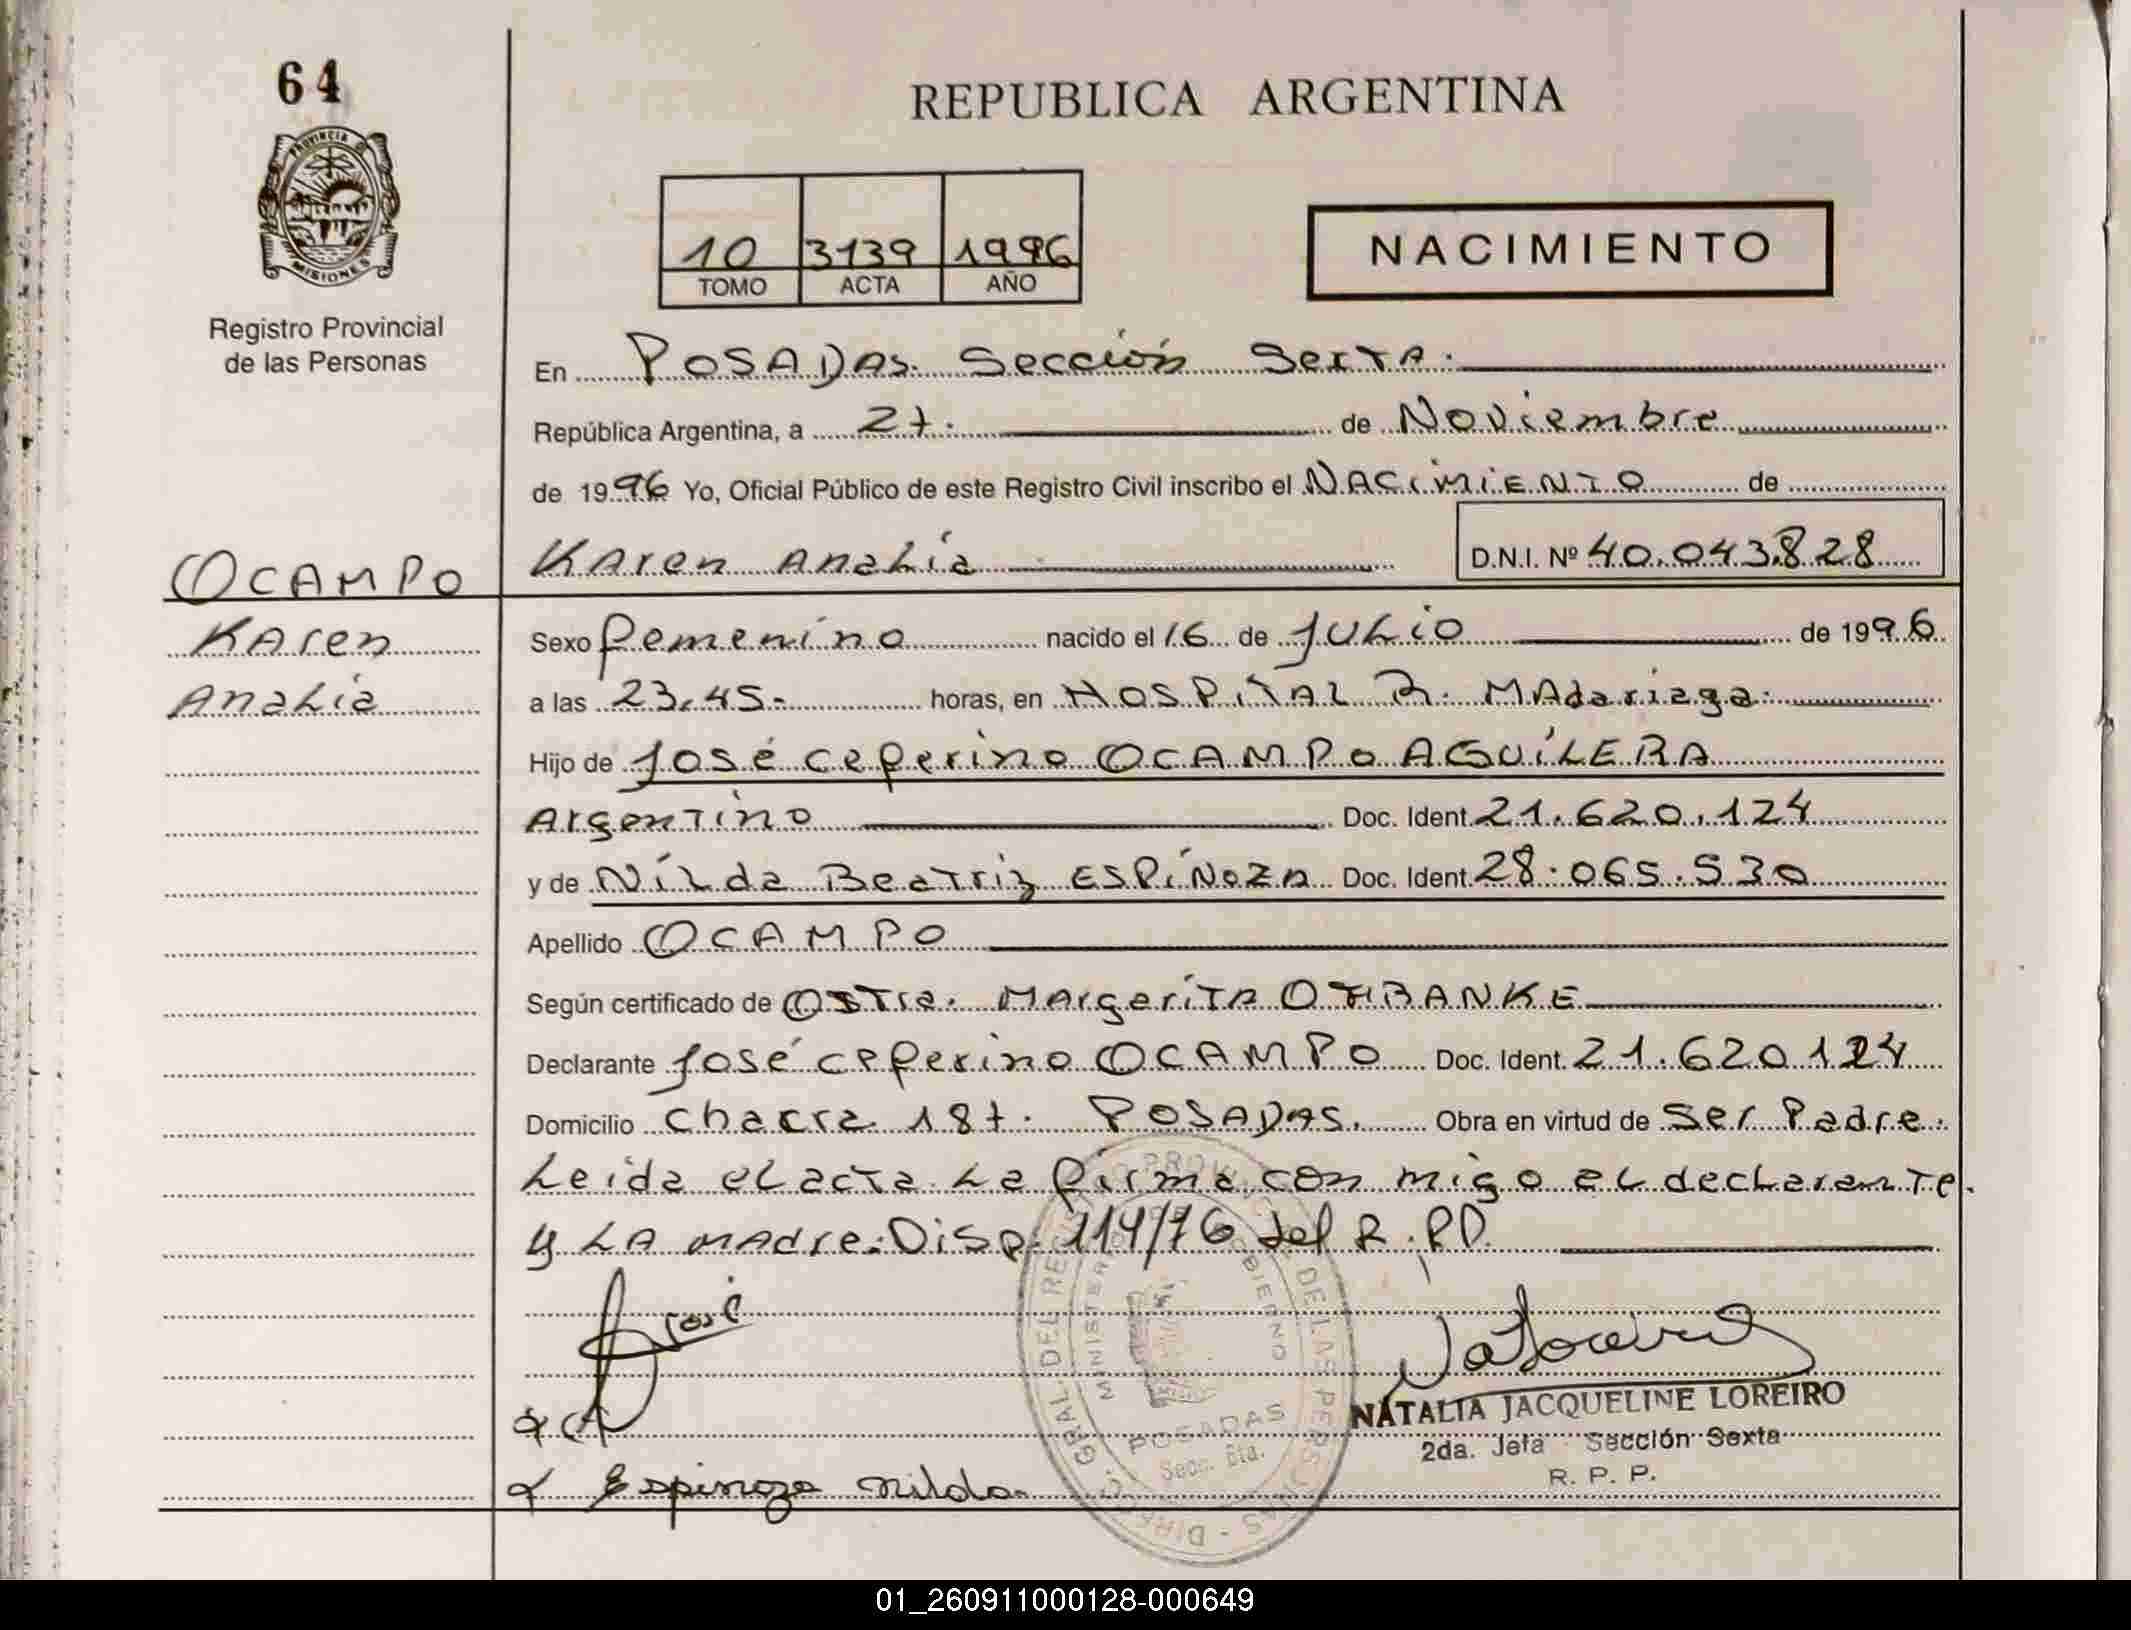 64
REPUBLICA ARGENTINA
PROVINCIA D
MISIONES
10 3139 1996
TOMO ACTA AÑO
NACIMIENTO
Registro Provincial
de las Personas
En POSADAS. Sección Sexta.
República Argentina, a 27. de Noviembre
de 1996 Yo, Oficial Público de este Registro Civil inscribo el NACIMIENTO de
Karen Analía D.N.I. Nº 40.043.828
OCAMPO
Karen
Analía
Sexo femenino nacido el 16 de Julio de 1996
a las 23,45- horas, en HOSPITAL R. MAdariaga.
Hijo de José ceferino OCAMPO AGUÍLERA
Argentino Doc. Ident. 21.620.124
y de Nílda Beatriz ESPÍNOZA Doc. Ident. 28.065.530
Apellido OCAMPO
Según certificado de Obstra. Margarita
Declarante José ceferino OCAMPO Doc. Ident. 21.620124
Domicilio chacra 187. POSADAS. Obra en virtud de ser Padre.
Leida el acta la firma con migo el declarante
y LA madre. Disp. 114/76 del R.P.P.
José
Espinoza nilda
NATALIA JACQUELINE LOREIRO
2da. Jefa Sección Sexta
R. P. P.
DIREC. GRAL DEL REGISTRO PROVINCIAL DE LAS PERSONAS
MINISTERIO GOBIERNO
POSADAS
Secc. 6ta.
01_260911000128-000649